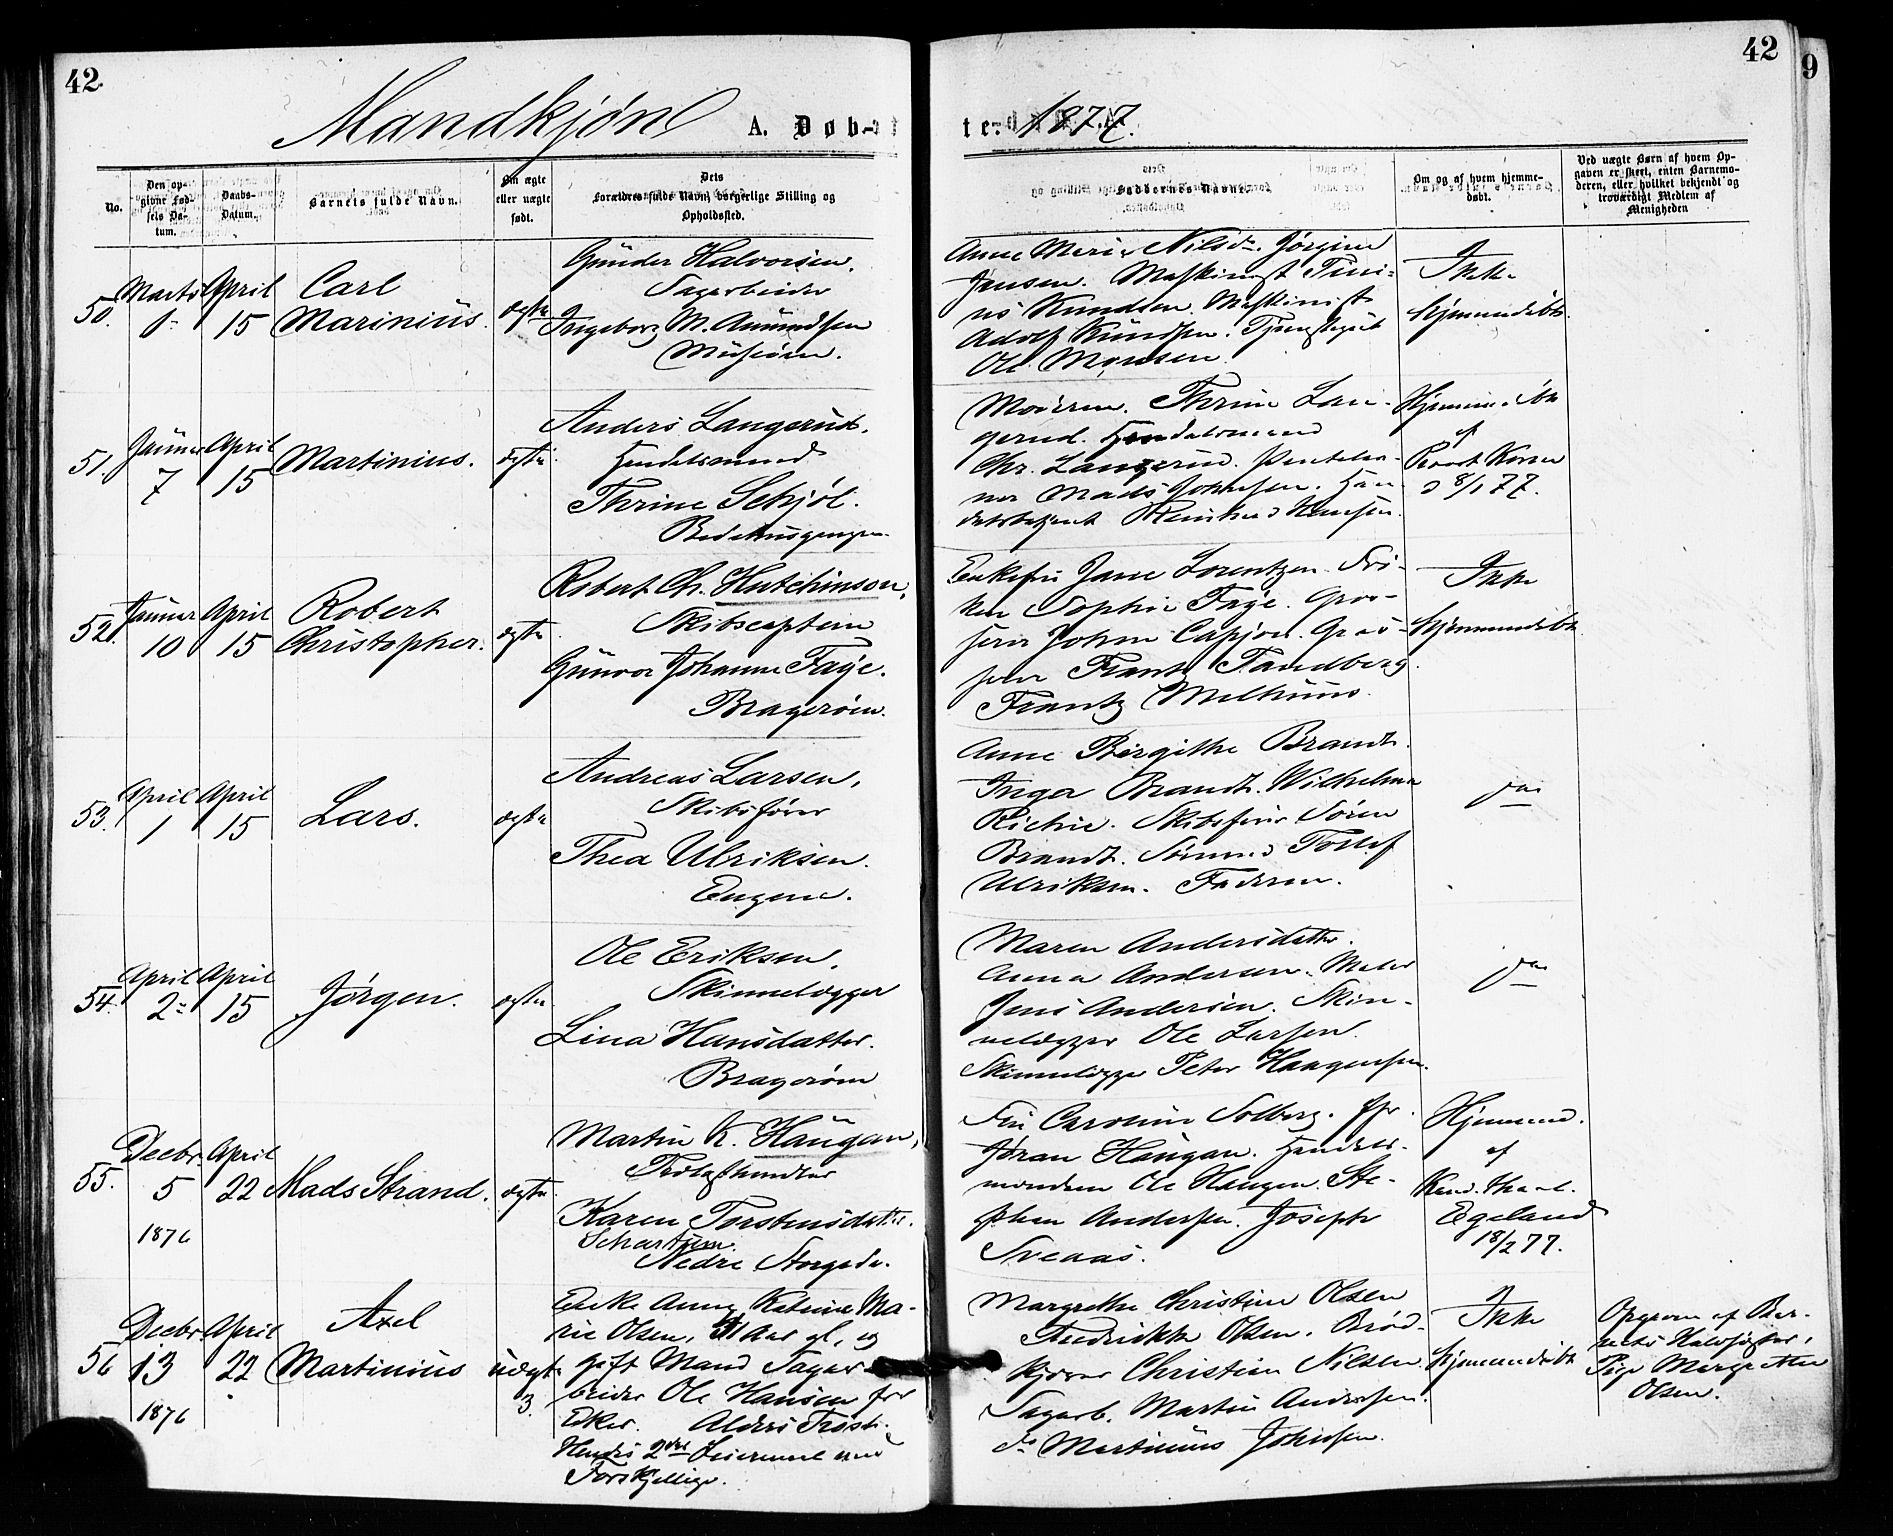 42
42
9
Mandkjøn
A. Døb-
te.
1877.
No.
Den opgivne Fødsels Datum.
Daabs-Datum.
Barnets fulde Navn.
Om ægte eller uægte født.
Dets
Forældres fulde Navn, borgerlige Stilling og
Opholdssted.
Faddernes Navne.
Om og af hvem hjemmedøbt.
Ved uægte Børn af hvem Op-
gaven er skeet, enten Barnemo-
deren, eller hvilket bekjendt og
troværdigt Medlem af
Menigheden
50.
Marts
April
15
Carl
Marinius.
ægte
Gunder Halvorsen,
Sagarbeider
Ingeborg M. Amundsen
Anne Marie Nilsdr. Jørgine
Jensen. Maskinist
Knudsen. Maskinist
Adolf Knudsen.
Ole Monsen
Ikke
hjemmedøbt.
51.
Januar
7
April
15
Martinius.
ægte
Anders Langerud,
Handelsmand
Thrine Schjøl.
Moderen. Thrine Lan-
gerud. Handelsmand
Chr. Langerud.
Mads Johnsen. Han-
Hansen.
Hjemmedøbt
af
8/1 77.
52.
Januar
10
April
15
Robert
Christopher.
ægte
Robert Ch. Hutchinson,
Skibscaptein
Gunvor Johanne Faye.
Bragerøen.
Enkefru Jane Lorentzen. Frø-
ken Sophie Faye. Gros-
serer John Capjon. Gros-
serer Frantz Tandberg.
Frantz Melhuus.
Ikke
hjemmedøbt
53.
April
1
April
15
Lars.
ægte
Andreas Larsen,
Skibsfører
Thea Ulriksen.
Engene.
Anne Birgithe Brandt.
Inga Brandt. Wilhelma
Richie. Skibsfører Søren
Brandt. Sømand Tollef
Ulriksen. Faderen.
54.
April
2
April
15
Jørgen.
ægte
Ole Eriksen,
Skinnelægger
Lina Hansdatter.
Bragerøen
Maren Andersdatter.
Anna Andersen. Maler
Jens Andersen. Skin-
nelægger Ole Larsen.
Skinnelægger Peter Haagensen.
55.
Decbr.
5
1876
April
22
Mads Strand.
ægte
Martin K. Haugan,
Karen Torstensdatter.
Schartum.
Nedre Storgade.
Fru Caroline Solberg.
Jøran Haugan. Handels-
manden Ole Haugen. Ste-
phen Andersen. Joseph
Sveaas.
Hjemmed.
af
Kand. theol.
Egeland
18/2 77.
56
Decbr.
13
1876
April
22
Axel
Martinius
uægte
3.
Enke Anne Katrine Ma-
rie Olsen, 41 Aar gl, og
gift Mand Sagar-
beider Ole Hansen fra
Eker.
Hendes 2det Leiermaal med
Forskjellige.
Margrethe Christine Olsen
Fredrikke Olsen. Brød-
kjører Christian Nilsen
Sagarb. Martin Andersen.
do Martinius Johnsen.
Ikke
hjemmedøbt
Opgaven af Bar-
nets Halvsøster,
Pige Margrethe
Olsen.